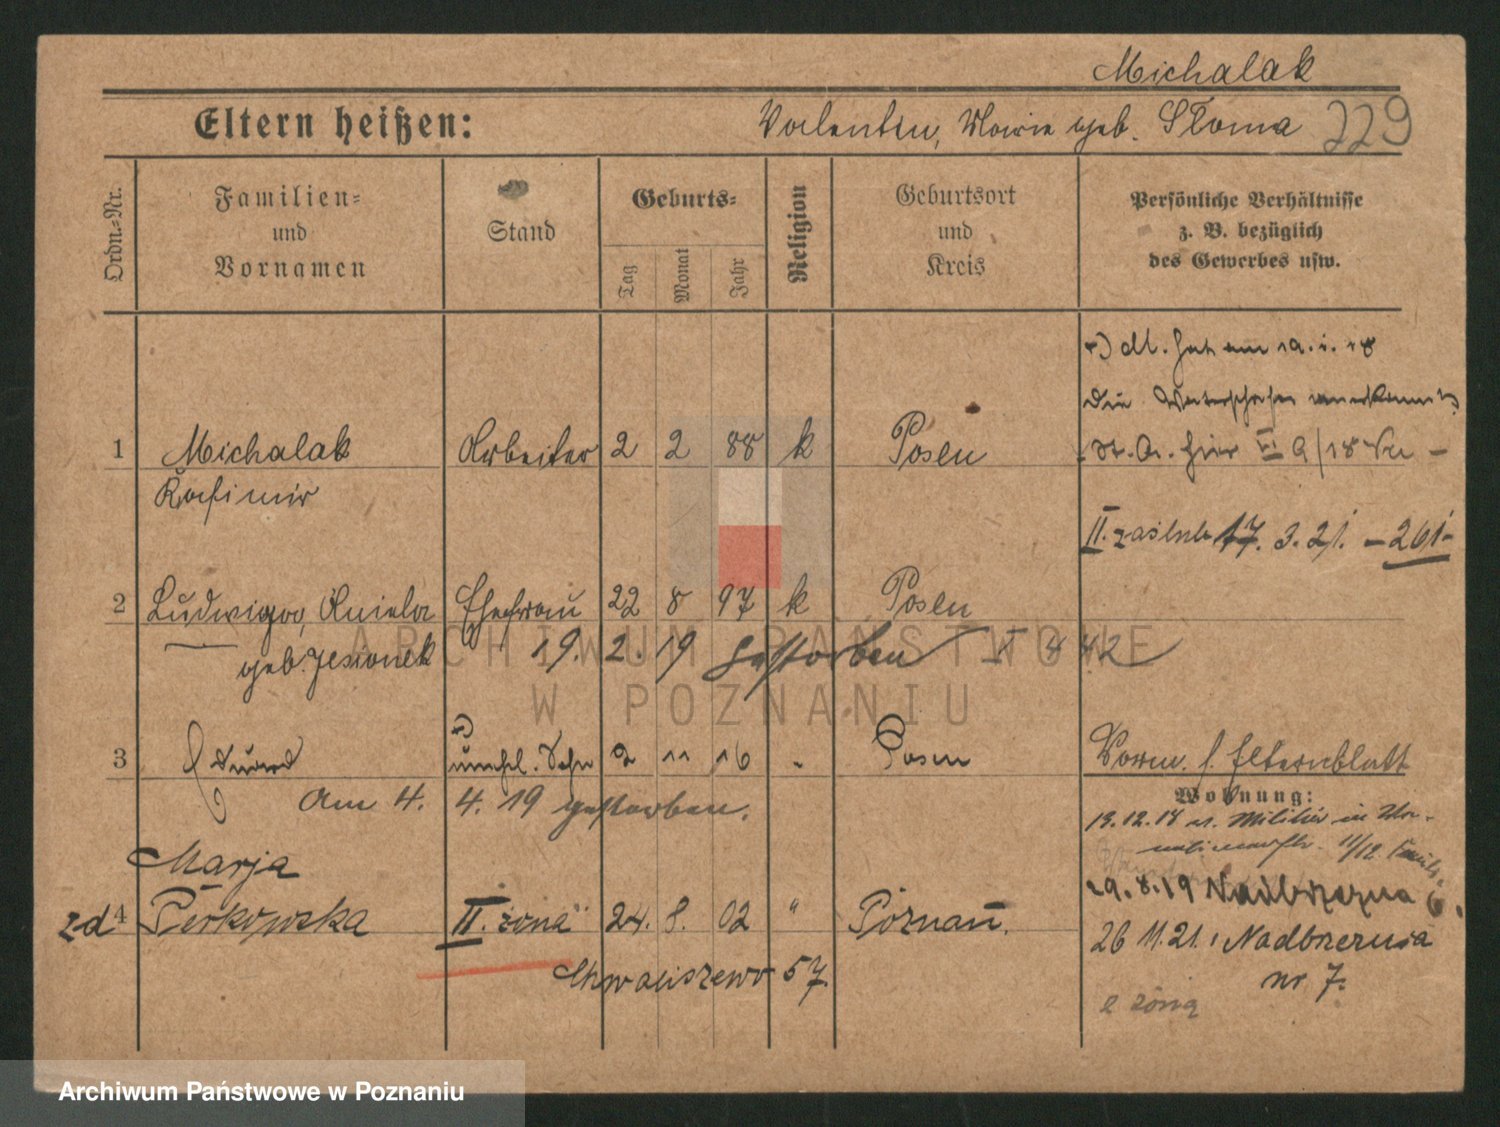 Michalak
Eltern heißen: Valentin, Marie geb. Słoma 229
Ordn.-Nr.
Familien- und Vornamen
Stand
Geburts-
Tag
Monat
Jahr
Religion
Geburtsort und Kreis
Persönliche Verhältnisse
z. B. bezüglich
des Gewerbes usw.
+) M. hat am 19. 1. 18
die Vaterschaft anerkannt
1 Michalak Arbeiter 2 2 88 k Posen
St. A. hier II 9/18
Kasimir
II. zaślub 17. 3. 21. - 261 -
2 Ludwiga, Aniela Ehefrau 22 8 97 k Posen
geb. Jesionek 19. 2. 19 gestorben 442
+)
3 Eduard unehl. Sohn 2 11 16 " Posen
Vorm. s. Elternblatt
Wohnung:
Am 4. 4. 19 gestorben.
13.12.18 Militär in
11/12
Marja
29. 8. 19 Nadbrzeżna 6.
zd 4 Perkowska II. żona 24. 8. 02 " Poznań.
26 11. 21. Nadbrzeżna
nr 7.
Chwaliszewo 57.
2 żona
ARCHIWUM PAŃSTWOWE
W POZNANIU
Archiwum Państwowe w Poznaniu